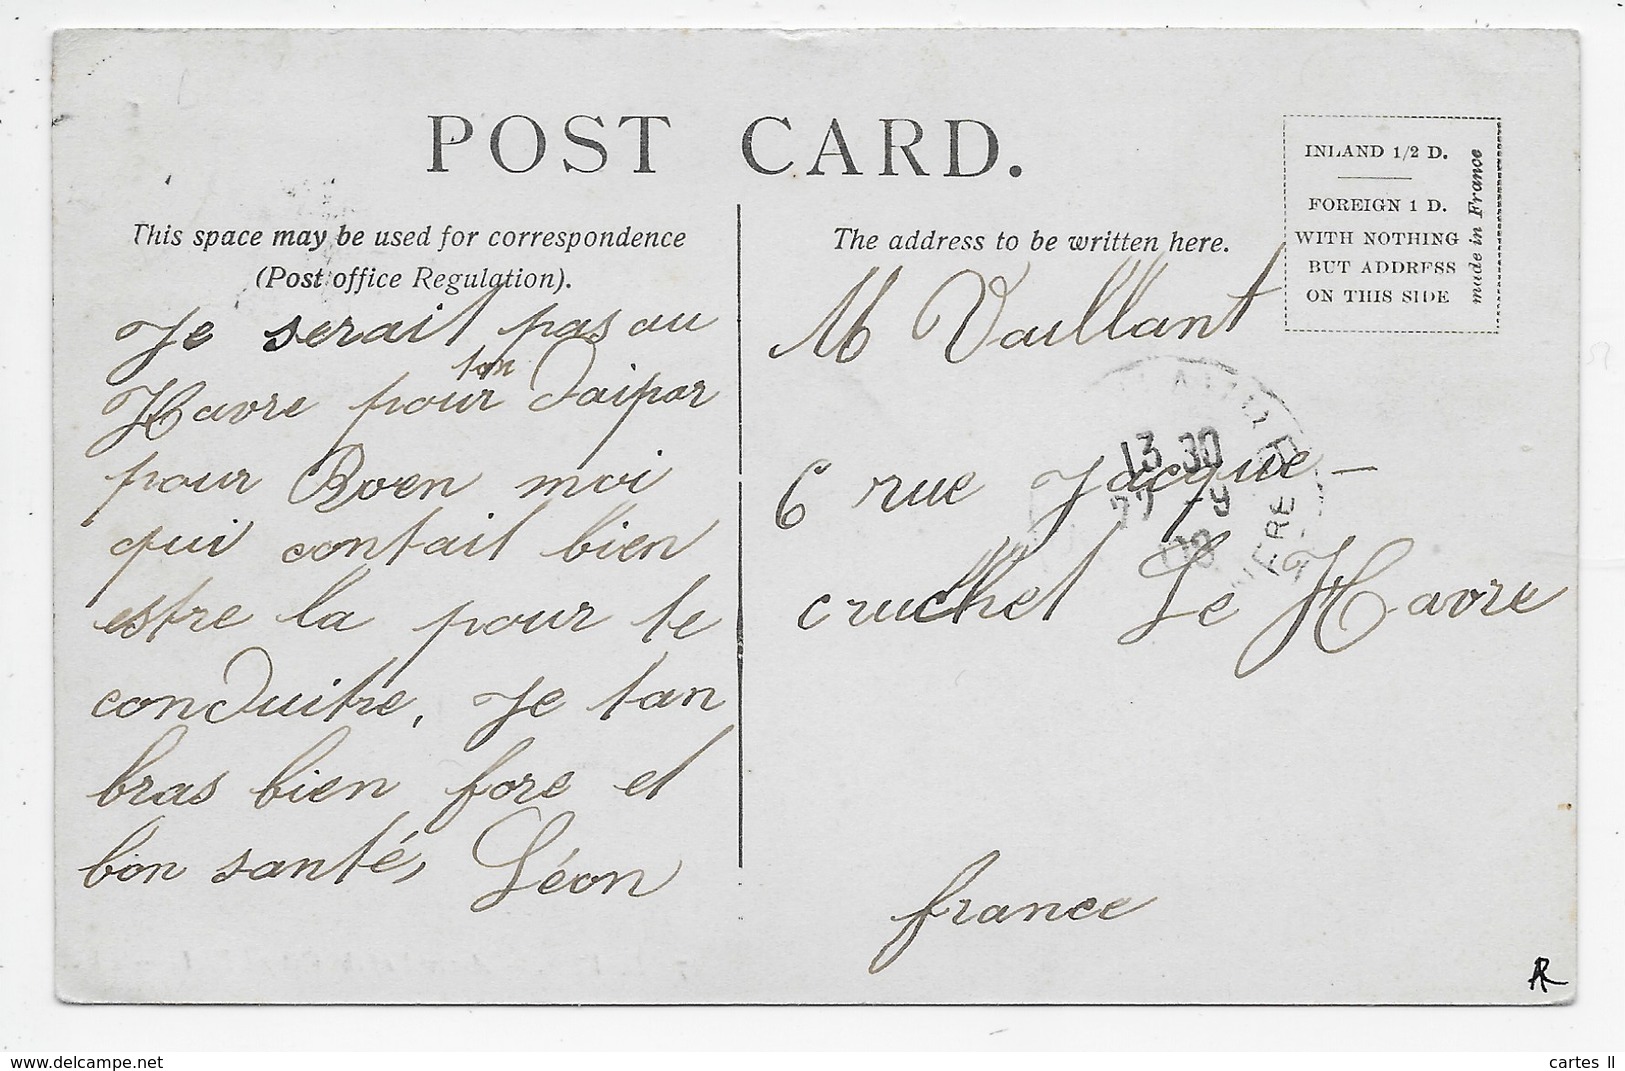 POST CARD.
This space may be used for correspondence
(Post office Regulation).
Je serait pas au
Havre pour ton Daipar
pour Boen moi
qui contait bien
estre la pour te
conduitre, Je tan
bras bien fore et
bon santé, Léon
The address to be written here.
INLAND 1/2 D.
FOREIGN 1 D.
WITH NOTHING
BUT ADDRESS
ON THIS SIDE
made in France
M Vaillant
6 rue Jacque-
cruchet Le Havre
france
13 30
08
AR
cartes II